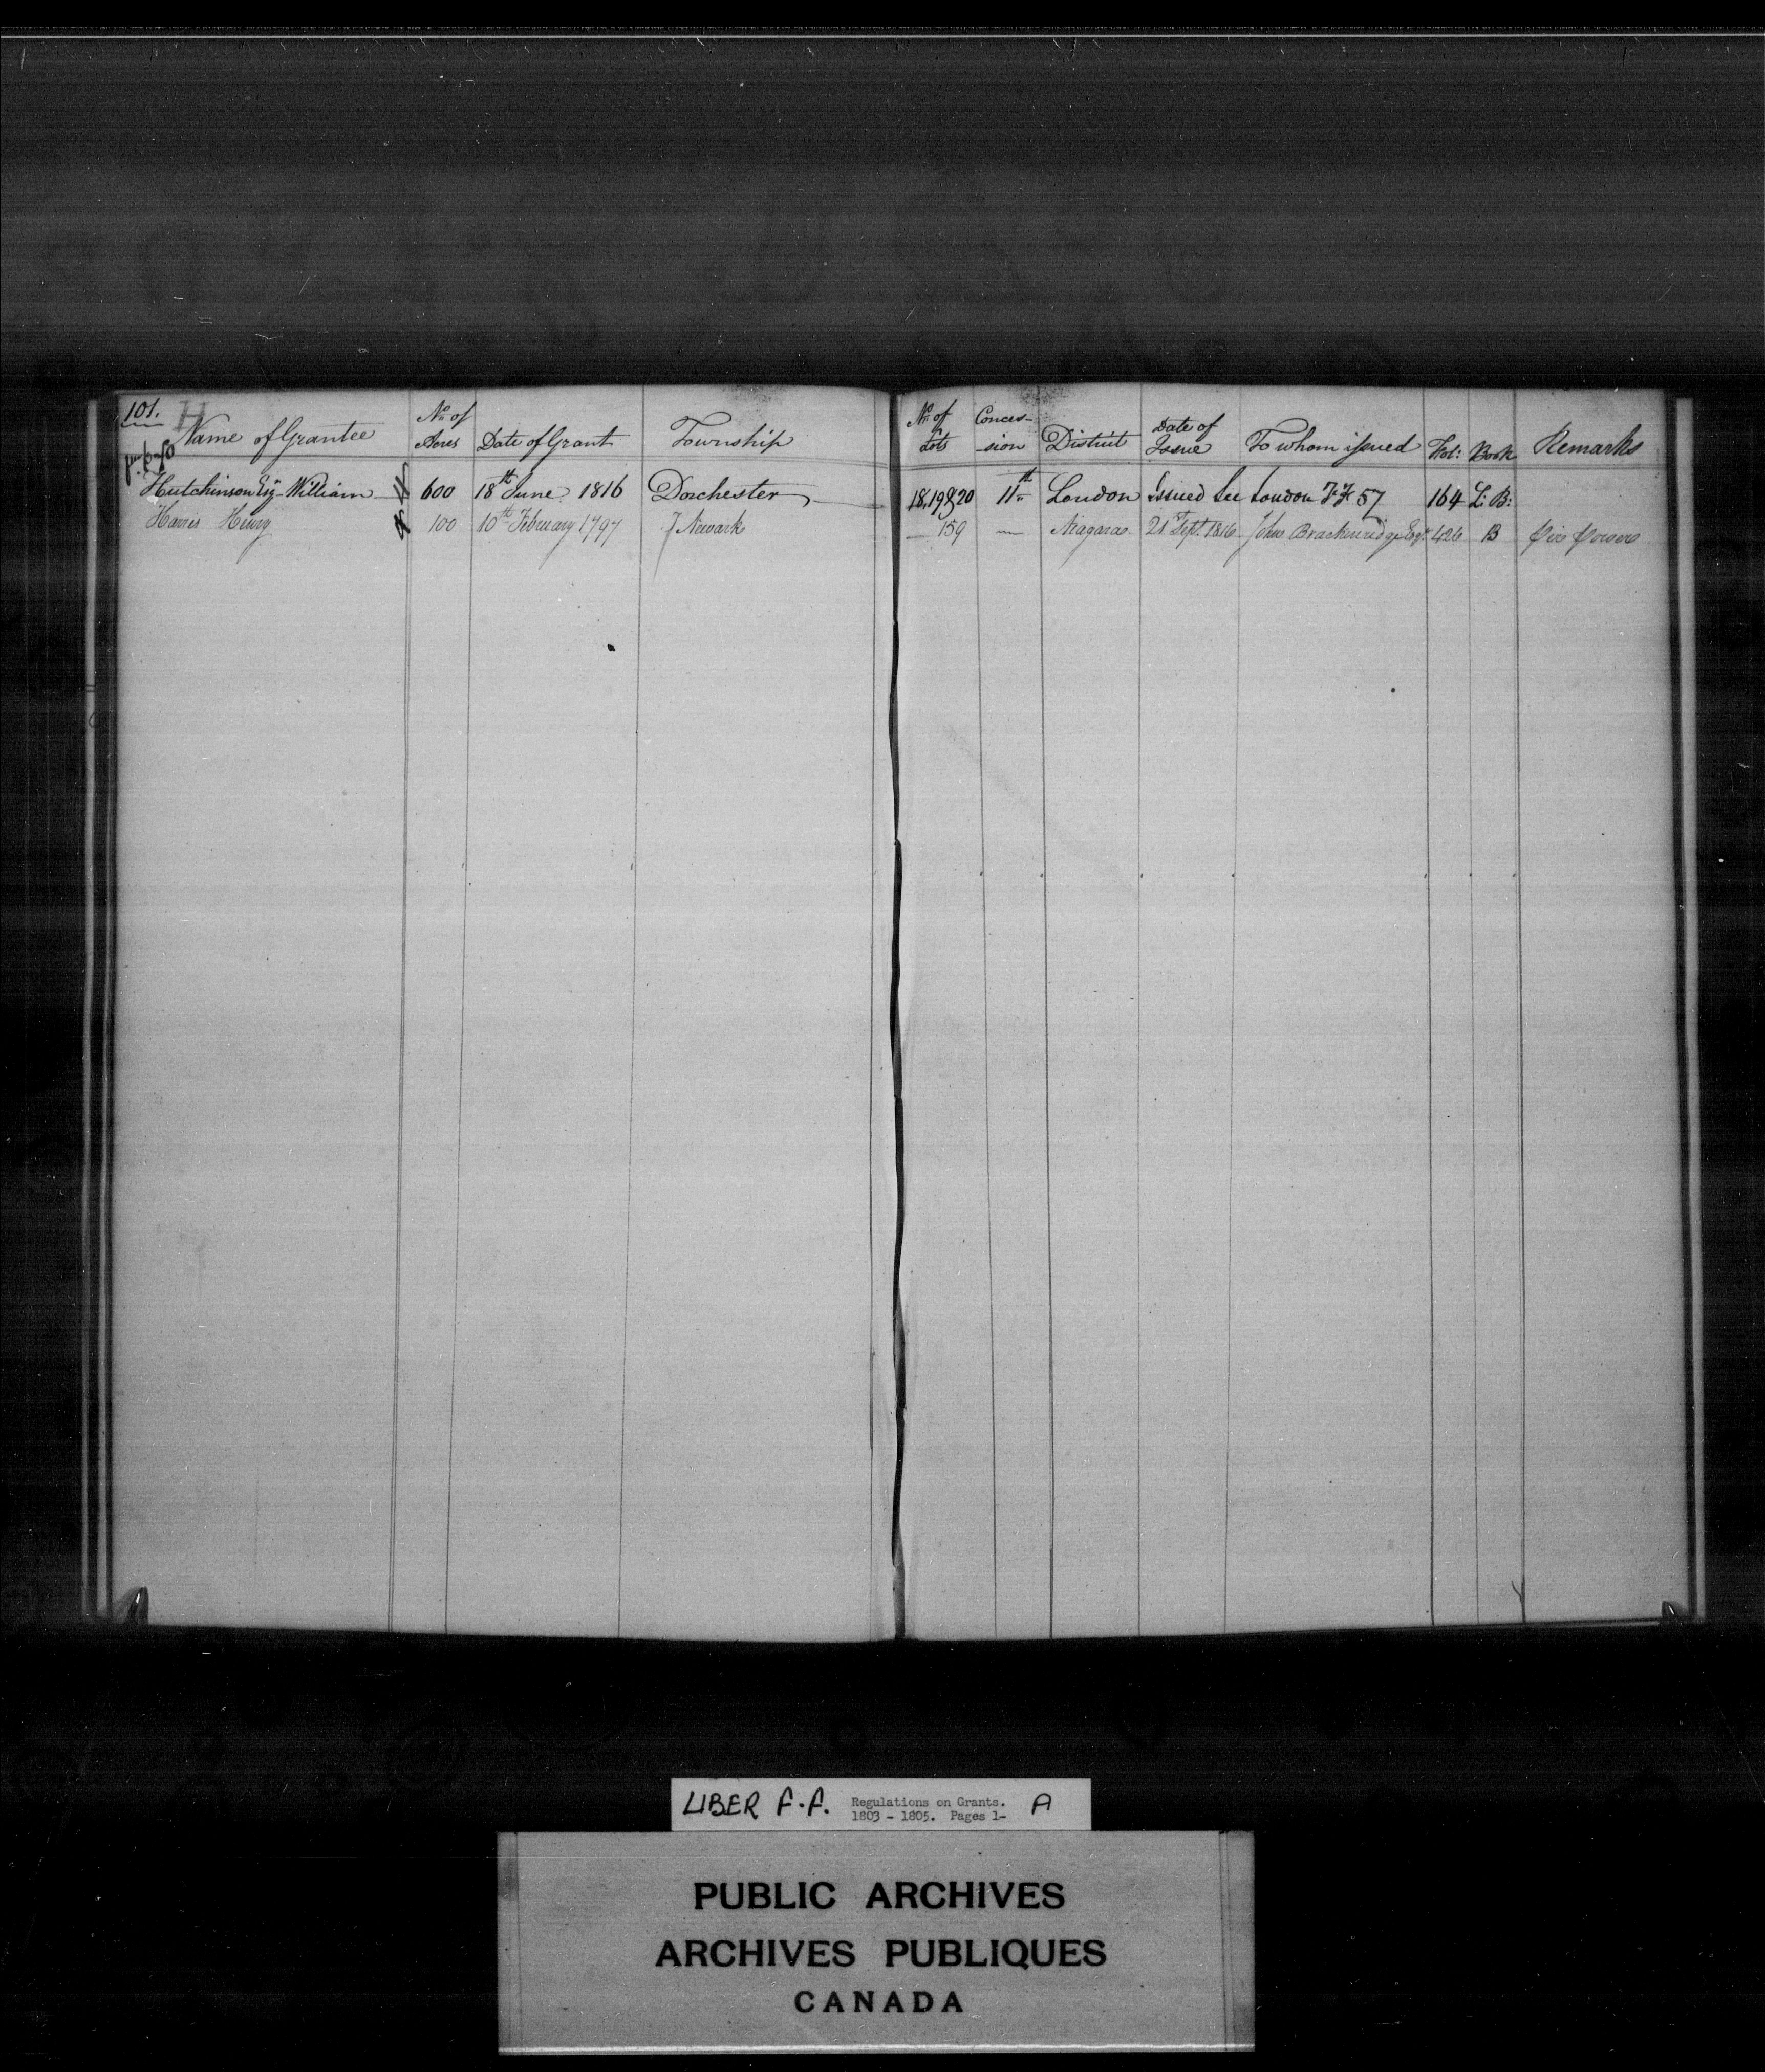 101. H
Name of Grantee No of Acres Date of Grant Township No of Lots Conces-sion District Date of Issue To whom issued Fol: Book Remarks
Hutchinson Esqr William 600 18th June 1816 Dorchester 18, 19 & 20 11th London Issued See London F.F. 57 164 L: B:
Harris Henry 100 10th February 1797 Newark 159 — Niagara 21st Sept. 1816 John Brackenridge Esqr. 426 B
LIBER F.F. Regulations on Grants. A
1803 - 1805. Pages 1-
PUBLIC ARCHIVES
ARCHIVES PUBLIQUES
CANADA